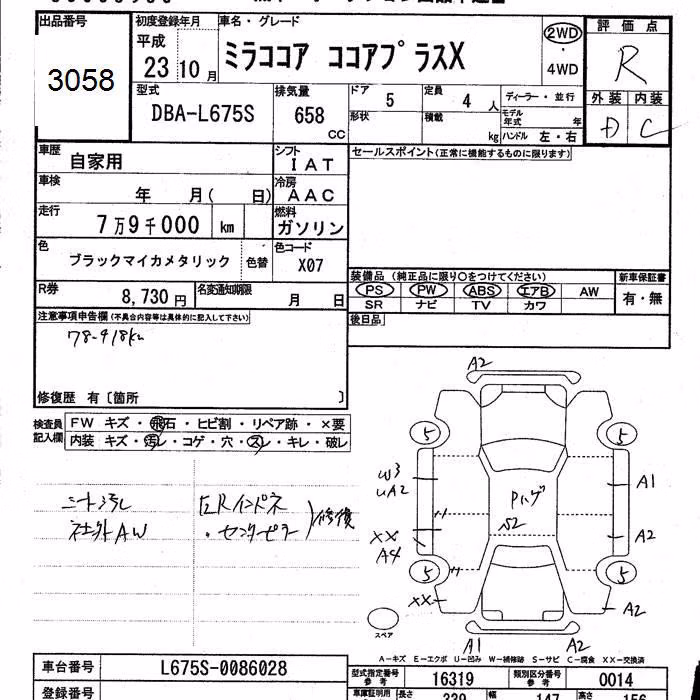 出品番号
3058
初度登録年月
平成
23 10 月
車名・グレード
ミラココア ココアプラスX
2WD
・
4WD
評価点
R
外装 内装
D C
型式
DBA-L675S
排気量
658
CC
ドア 5
定員 4 人
ディーラー・並行
形状
積載
kg
モデル年式 年
ハンドル 左・右
車歴
自家用
シフト
IAT
セールスポイント(正常に機能するものに限ります)
車検
年 月( 日)
冷房
AAC
走行
7万9千000 km
燃料
ガソリン
色
ブラックマイカメタリック
色替
色コード
X07
R券
8,730 円
名変通知期限
月 日
装備品 (純正品に限り〇をつけてください)
PS PW ABS エアB AW
SR ナビ TV カワ
新車保証書
有・無
後日品
注意事項申告欄(不具合内容等は具体的に記入して下さい)
78-418km
修復歴 有〔箇所 〕
検査員
記入欄
FW キズ・飛石・ヒビ割・リペア跡・×要
内装 キズ・汚レ・コゲ・穴・スレ・キレ・破レ
シート汚れ
社外AW
左Rインパネ
・センターピラー
修復
A2
5
5
W3
UA2
Pハゲ
A1
A2
XX
A4
5
5
XX
A2
A1
A2
スペア
A-キズ E-エクボ U-凹み W-補修跡 S-サビ C-腐食 XX-交換済
車台番号
L675S-0086028
型式指定番号
参考
16319
類別区分番号
参考
0014
登録番号
車庫証明用
長さ
339
幅
147
高さ
156